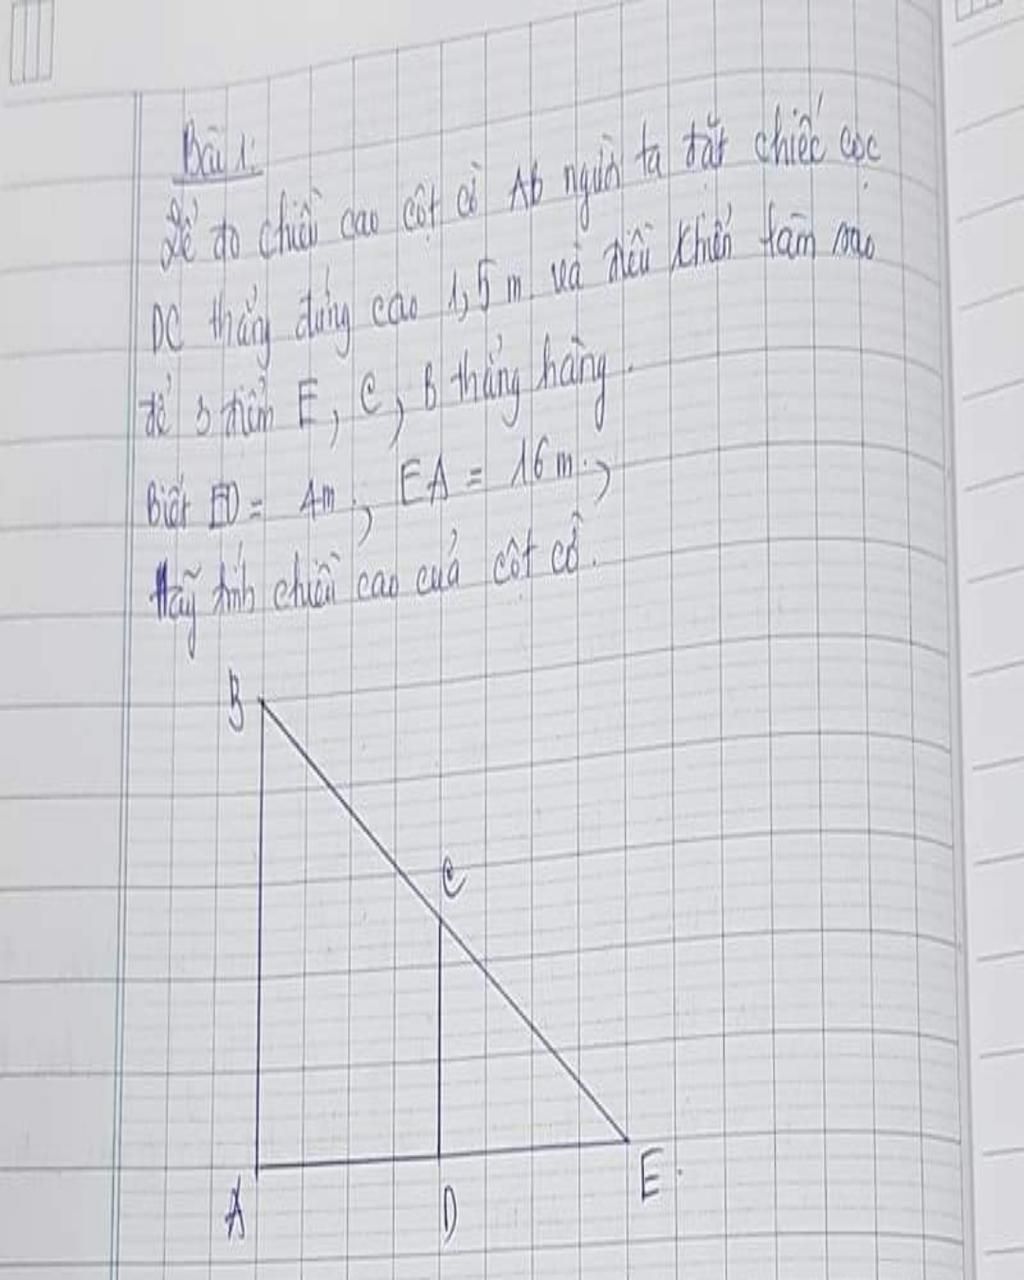 Bài 1:
Để đo chiều cao cột cờ AB người ta đặt chiếc cọc
DC thẳng đứng cao 1,5 m và điều khiển tầm sao
để 3 điểm E, C, B thẳng hàng.
Biết ED = 4m, EA = 16 m,
Hãy tính chiều cao của cột cờ.
B
C
A
D
E